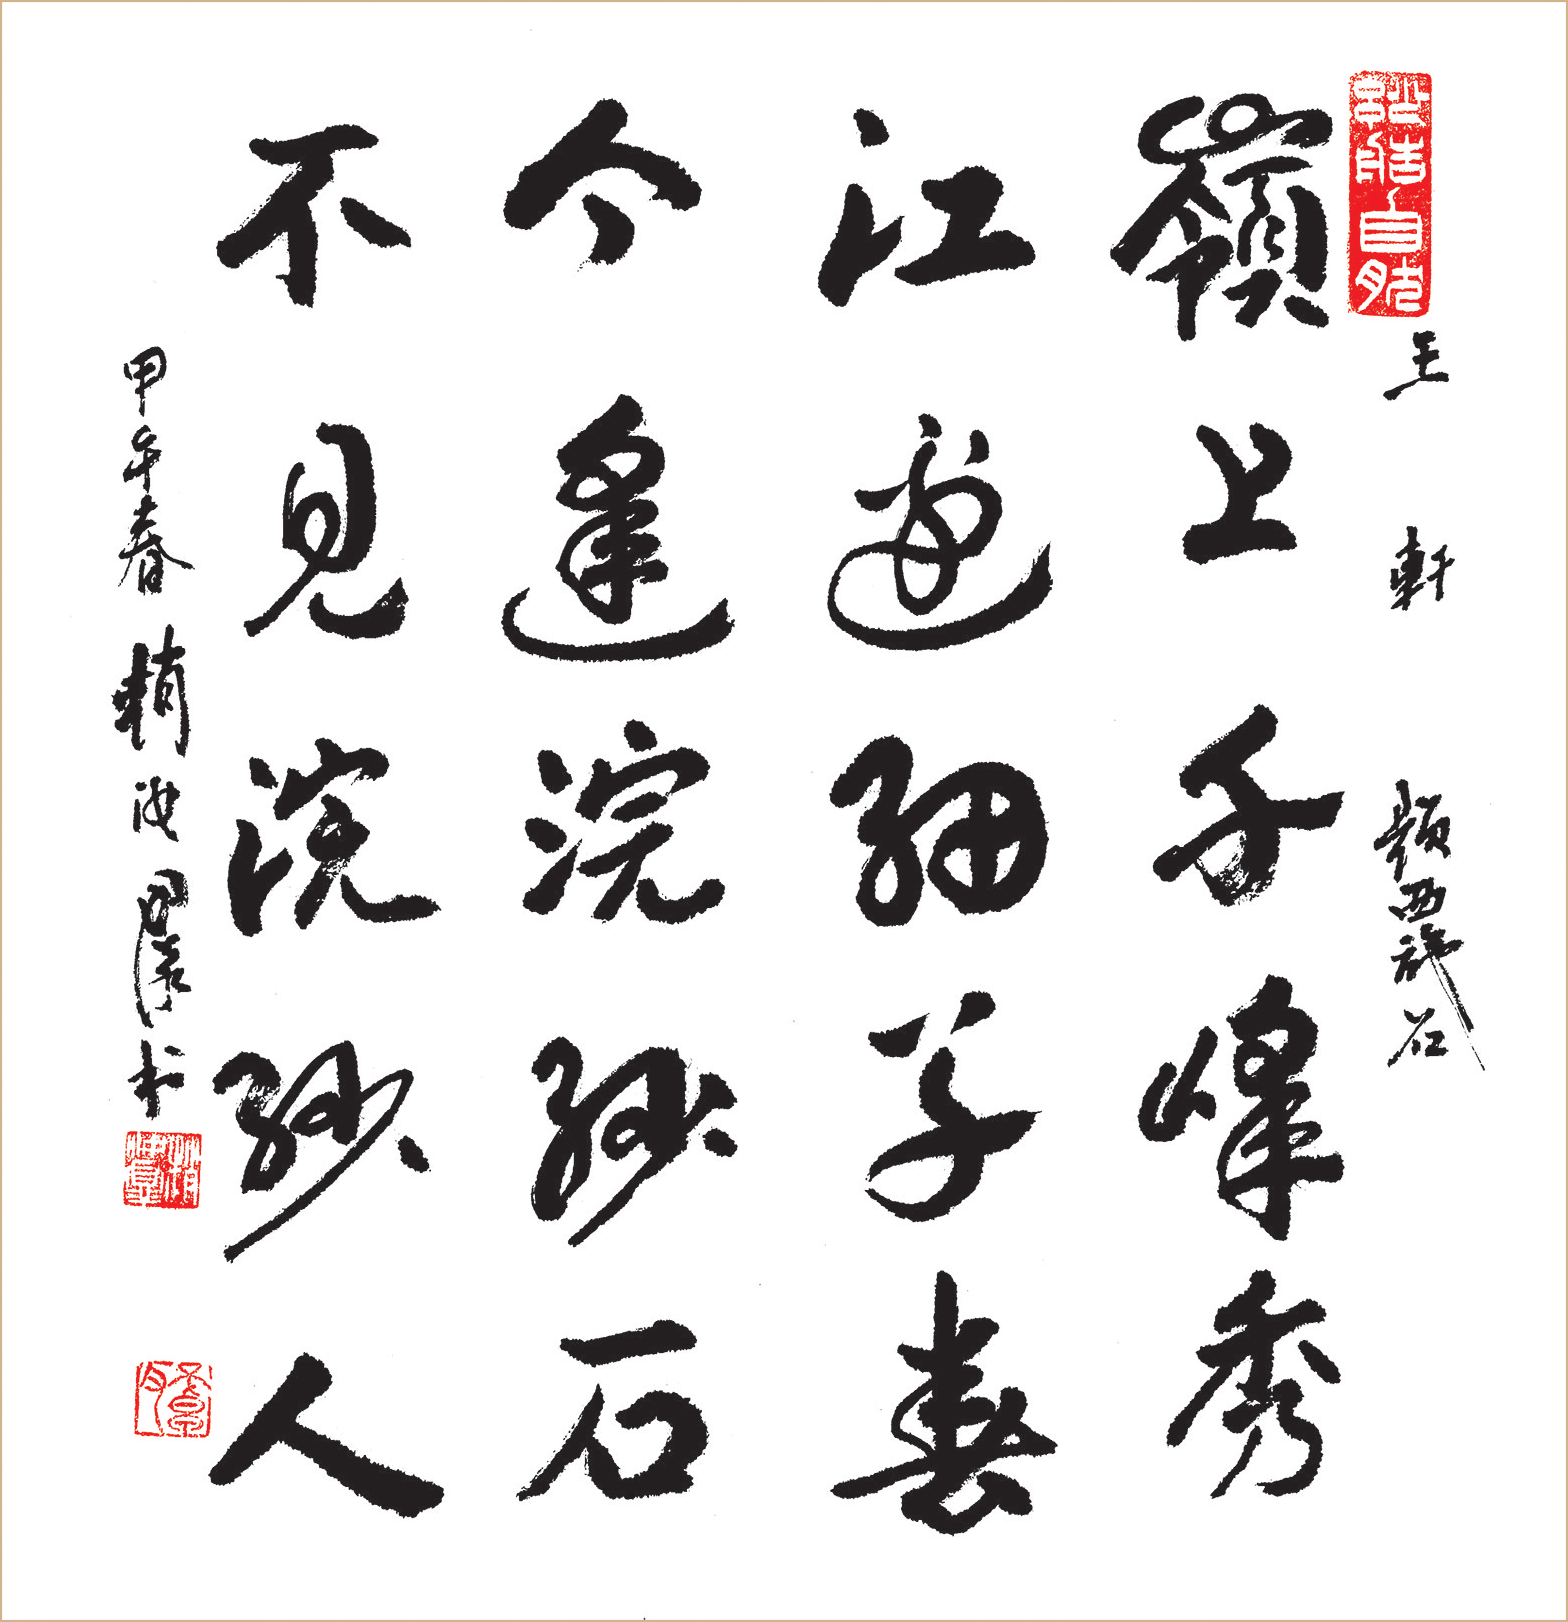 王軒 題西施石
嶺上千峰秀
江邊細草春
今逢浣紗石
不見浣紗人
甲午春